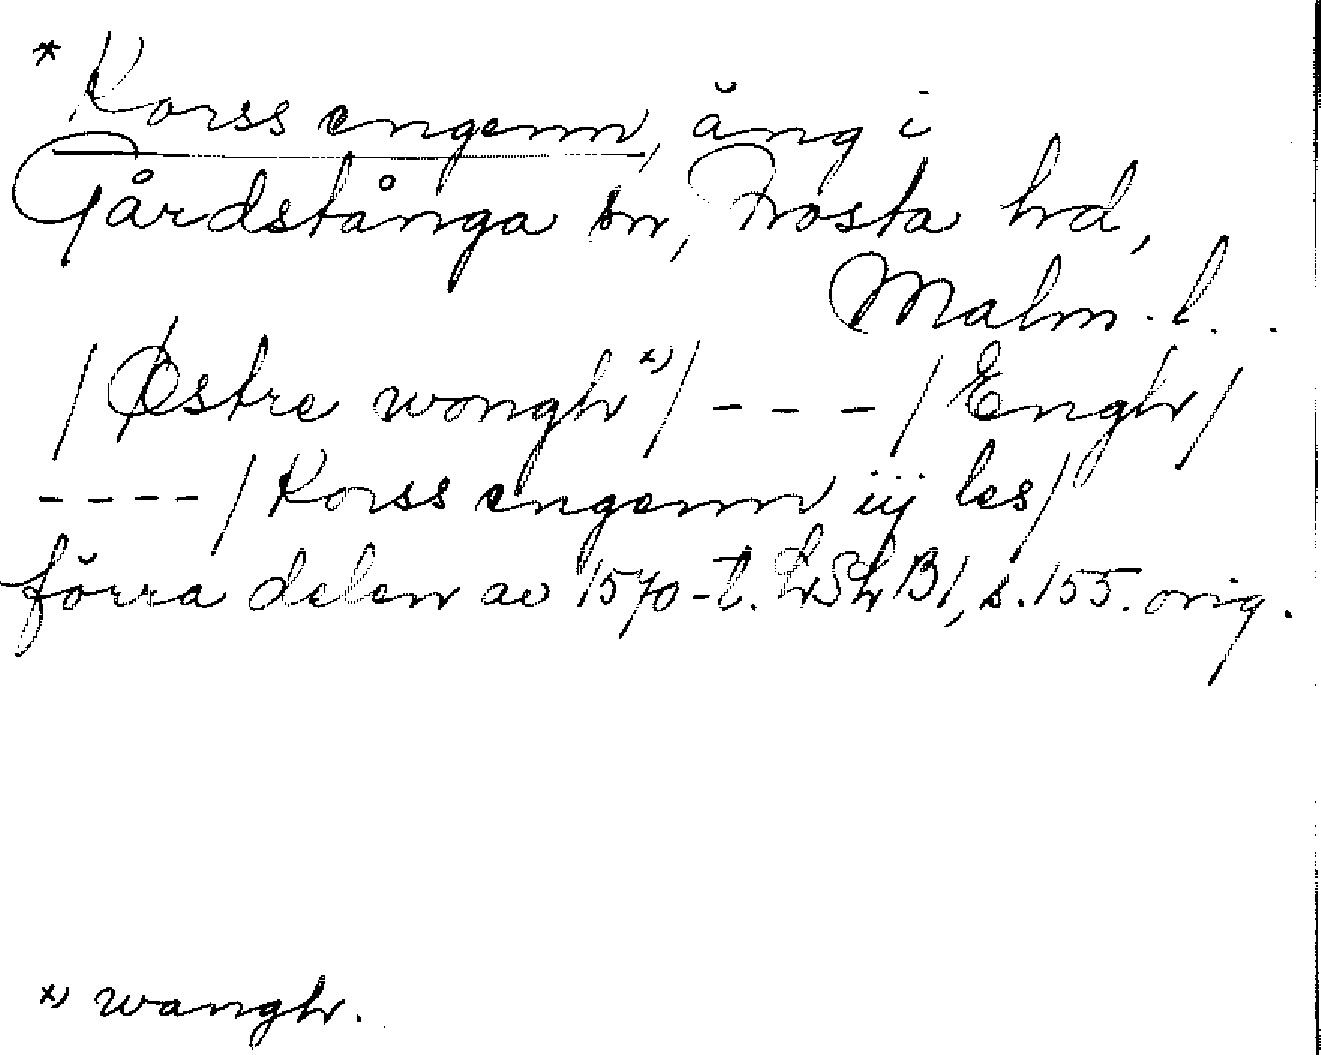 * Korss engenn, äng i
Gårdstånga sn, Frosta hd,
Malm. l.
/ Østre wongh x) / - - - / Engh /
- - - - / Korss engenn iij les /
förra delen av 1570-t. LSLB1, s. 155. orig.
x) wangh.